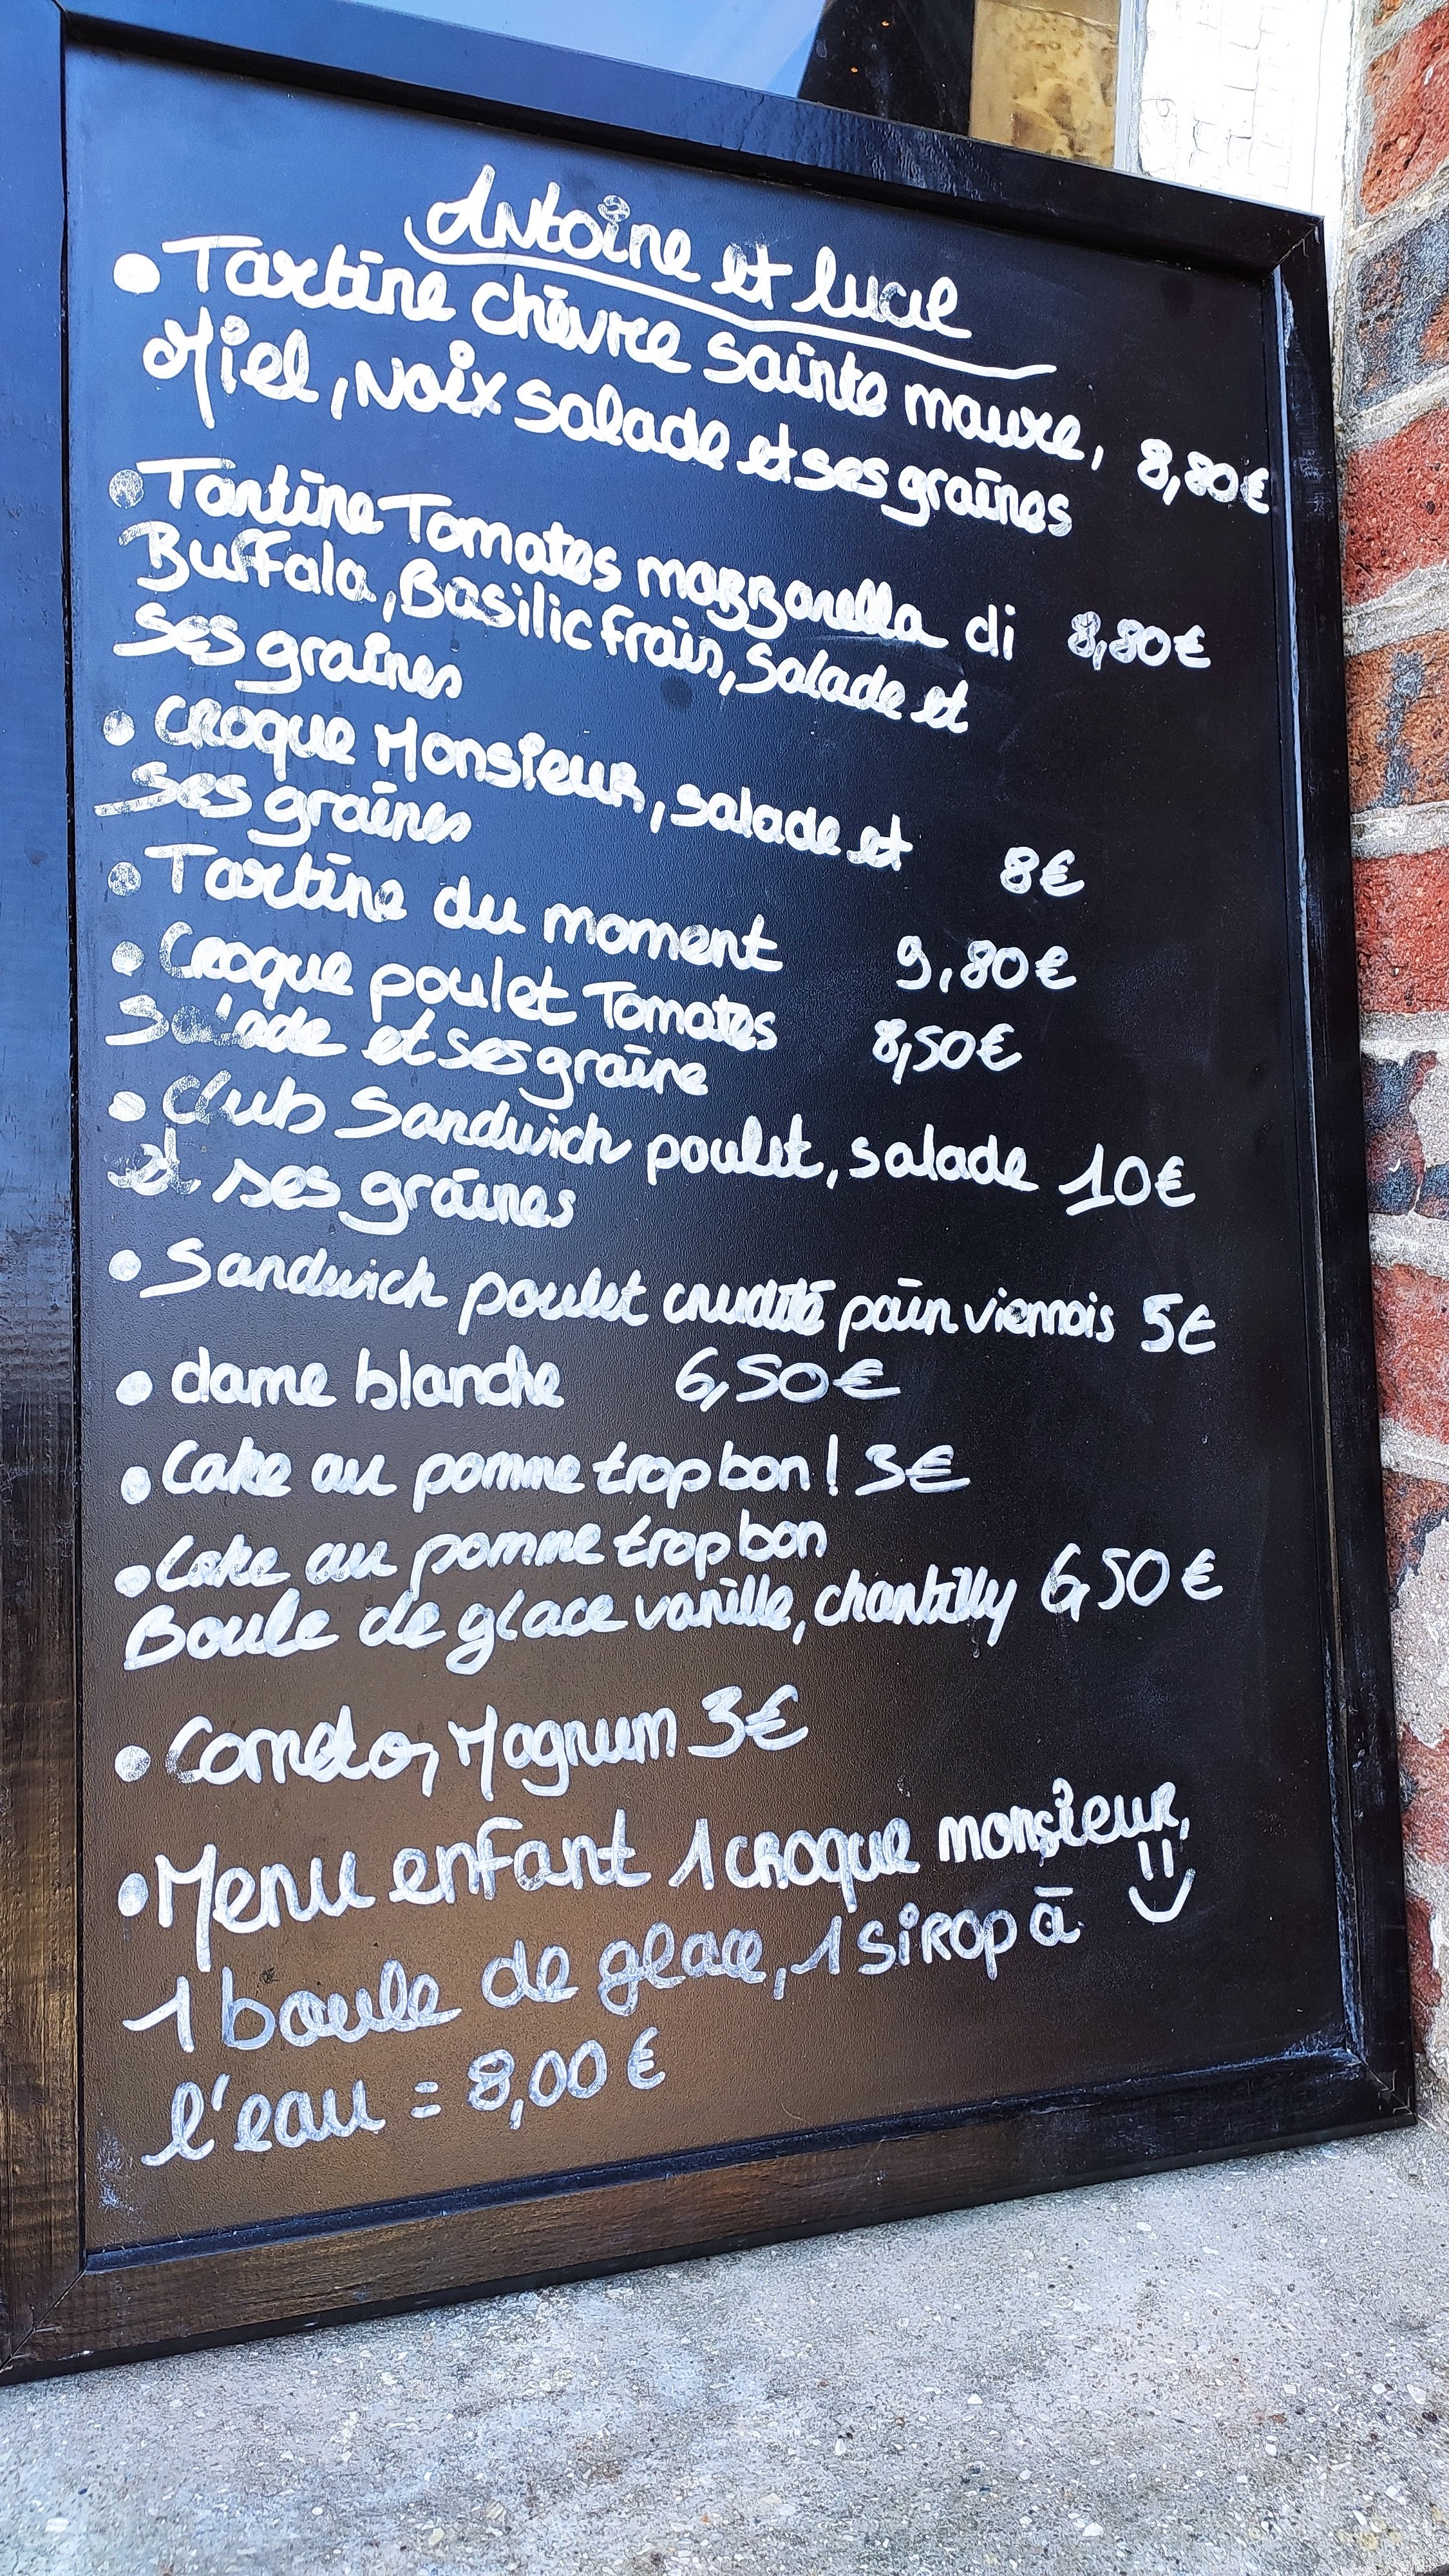 Antoine et Lucie
• Tartine chèvre sainte maure, 8,80€
Miel, Noix salade et ses graines
• Tartine Tomates mozzarella di 8,80€
Buffala, Basilic frais, salade et
ses graines
• Croque Monsieur, salade et
ses graines 8€
• Tartine du moment 9,80€
• Croque poulet Tomates 8,50€
Salade et ses graine
• Club Sandwich poulet, salade 10€
et ses graines
• Sandwich poulet crudité pain viennois 5€
• dame blanche 6,50€
• Cake au pomme trop bon! 3€
• Cake au pomme trop bon
Boule de glace vanille, chantilly 6,50€
• Corneto, Magnum 3€
• Menu enfant 1 croque monsieur,
1 boule de glace, 1 sirop à
l'eau = 8,00€